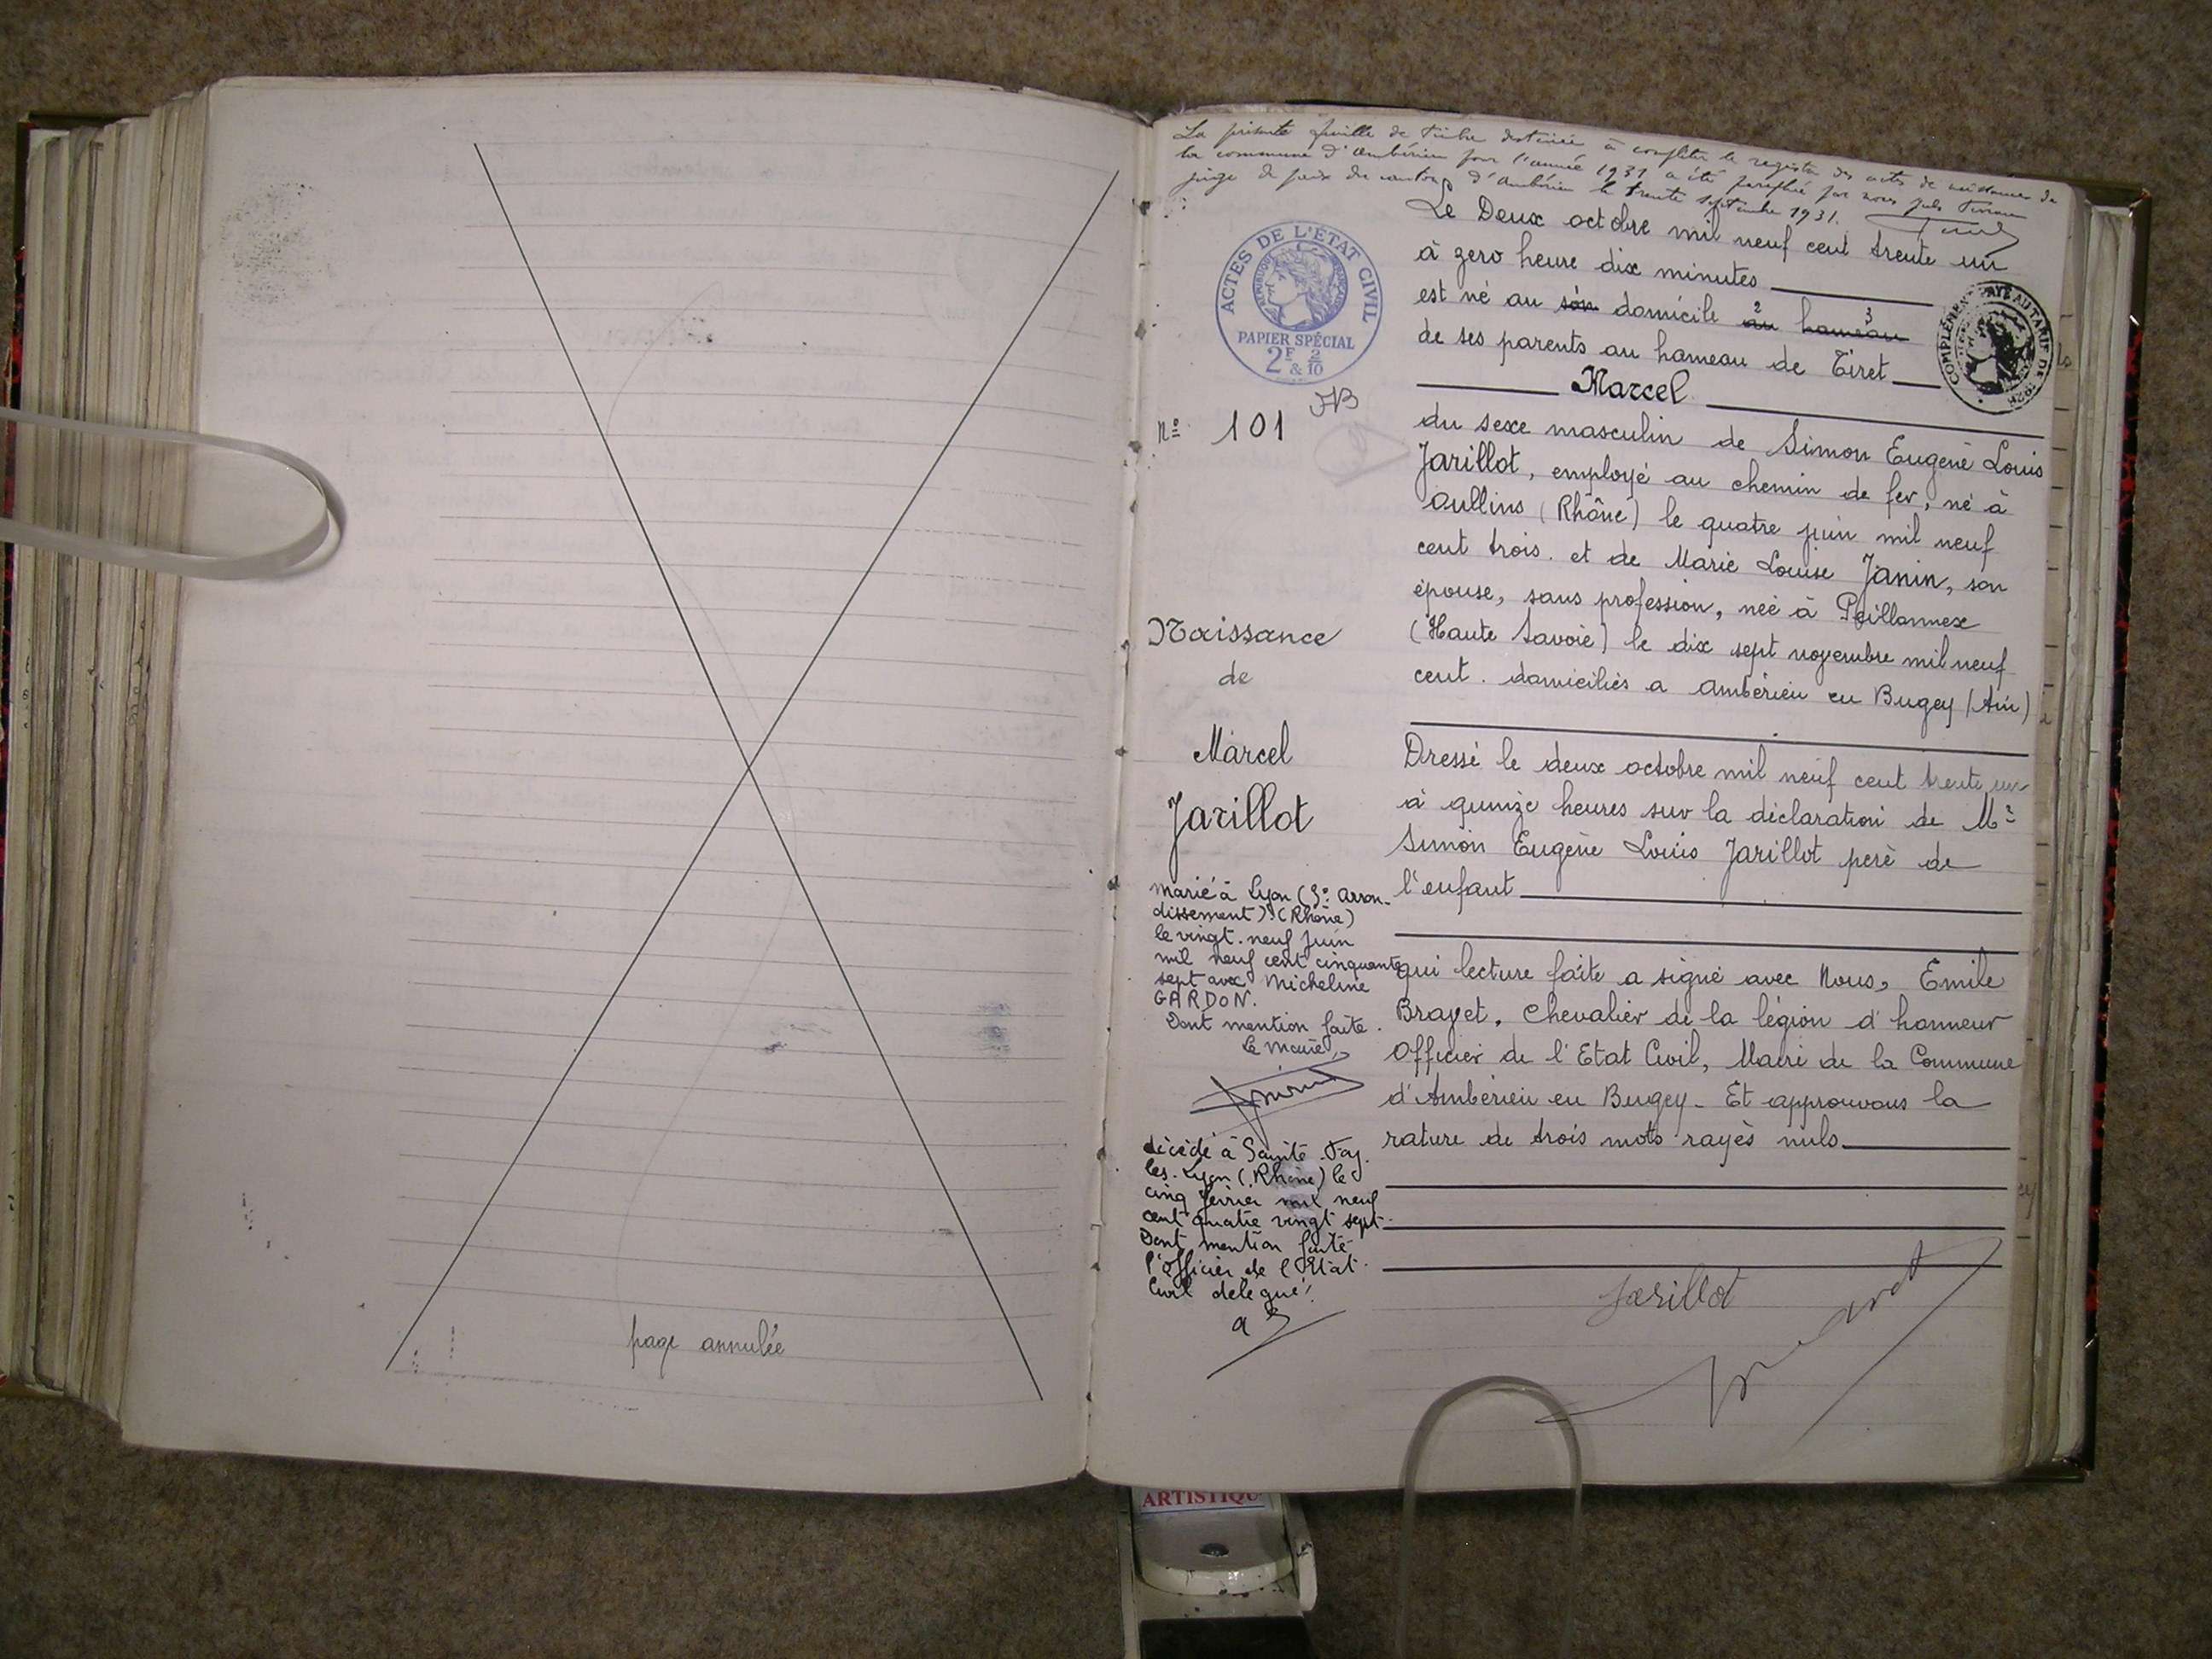 page annulée
La présente feuille de timbre destinée à compléter le registre des actes de naissances de
la commune d'Ambérieu pour l'année 1931 a été paraphée par nous
juge de paix du canton d'Ambérieu le trente septembre 1931.
ACTES DE L'ÉTAT CIVIL
RÉPUBLIQUE FRANÇAISE
PAPIER SPÉCIAL
2F 2/10
&
COMPLÉMENT PAYÉ AU TARIF DE 1926
JB
No 101
Naissance
de
Marcel
Jarillot
Le Deux octobre mil neuf cent trente un
à zero heure dix minutes
est né au son domicile au 2 hameau 3
de ses parents au hameau de Tiret
Marcel
du sexe masculin de Simon Eugène Louis
Jarillot, employé au chemin de fer, né à
Oullins (Rhône) le quatre juin mil neuf
cent trois. et de Marie Louise Janin, son
épouse, sans profession, née à Peillonnex
(Haute Savoie) le dix sept novembre mil neuf
cent. domiciliés a Ambérieu en Bugey (Ain)
Dressé le deux octobre mil neuf cent trente un
à quinze heures sur la déclaration de Mr
Simon Eugène Louis Jarillot père de
l'enfant
qui lecture faite a signé avec Nous, Emile
Bravet, Chevalier de la légion d'honneur
Officier de l'Etat Civil, Maire de la Commune
d'Ambérieu en Bugey. Et approuvons la
rature de trois mots rayés nuls
marié à Lyon (3e Arron-
dissement) (Rhône)
le vingt. neuf juin
mil neuf cent cinquante
sept avec Micheline
GARDON.
Dont mention faite.
Le Maire,
décédé à Sainte-Foy.
les. Lyon (Rhône) le
cinq février mil neuf
cent quatre vingt sept.
Dont mention faite
l'officier de l'Etat.
Civil délégué.
Jarillot
ARTISTIQU